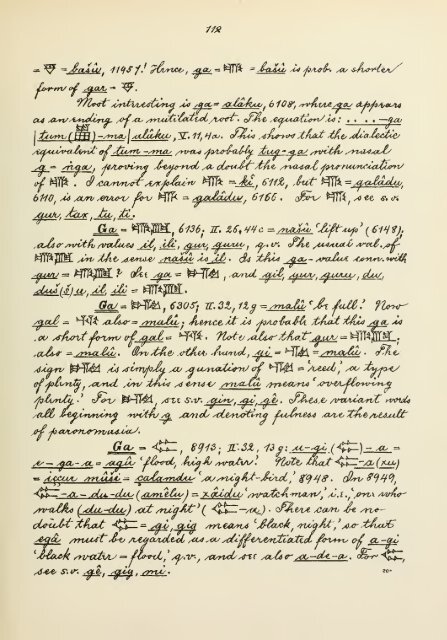 112
= 𒃻 = bašû, 11957! Hence, ga = 𒂵 = bašû is prob. a shorter
form of gar = 𒃻.
Most interesting is ga = alâku, 6108, where ga appears
as an ending of a mutilated root. The equation is: .....-ga
| tum ( )-ma | alâku, V. 11, 4a. This shows that the dialectic
equivalent of tum-ma was probably tug-ga with nasal
g = nga, proving beyond a doubt the nasal pronunciation
of 𒂵. I cannot explain 𒂵 = ki, 6112, but 𒂵 = galâdu,
6110, is an error for 𒂵 = galâdu, 6166. For, see s.v.
gur, tax, tu, ti.
Ga = , 6136; II. 26, 44c = našû 'lift up' (6148),
also with values il, ili, gur, guru, q.v. The usual val. of
in the sense našû is il. Is this ga-value conn. with
gur = ? See ga = , and gil, gur, guru, du,
duš(š)u, il, ili = .
Ga = , 6305; II. 32, 12g = malû 'be full.' Now
gal = also = malû; hence it is probable that this ga is
a short form of gal = . Note also that gur = ,
also = malû. On the other hand, gi = = malû. The
sign is simply a gunation of = 'reed,' a type
of plenty, and in this sense malû means 'overflowing
plenty.' For , see s.v. gin, gi, gê. These variant words
all beginning with g and denoting fulness are the result
of paronomasia.
Ga = , 8913; II. 32, 13g: u-gi ( ) -a =
e-ga-a = agû 'flood, high water.' Note that -a (xu)
= iççur mûši = çalamdu 'a night-bird,' 8948. In 8949,
-a-du-du (amêlu) = xâidu 'watchman,' i.e., one who
walks (du-du) at night' ( -a). There can be no
doubt that = gi, gig means 'black, night,' so that
egâ must be regarded as a differentiated form of a-gi
'black water = flood,' q.v., and see also a-de-a. For ,
see s.v. gê, gig, mi.